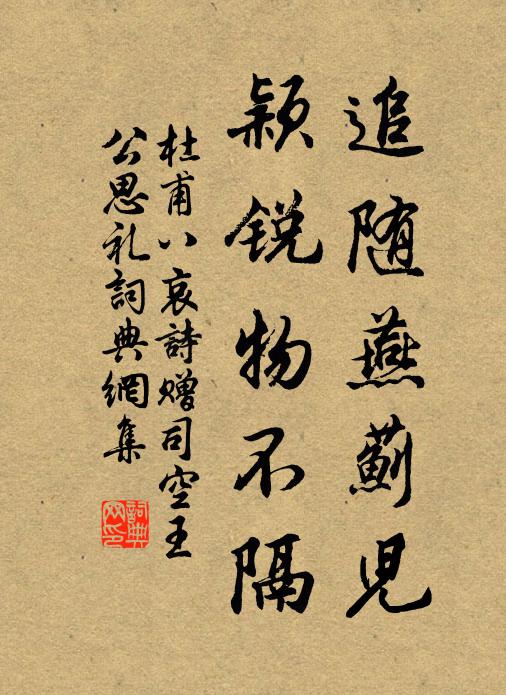 追随燕薊児
颖锐物不隔
杜甫八哀詩赠司空王
公思礼詞典網集
詞典网印